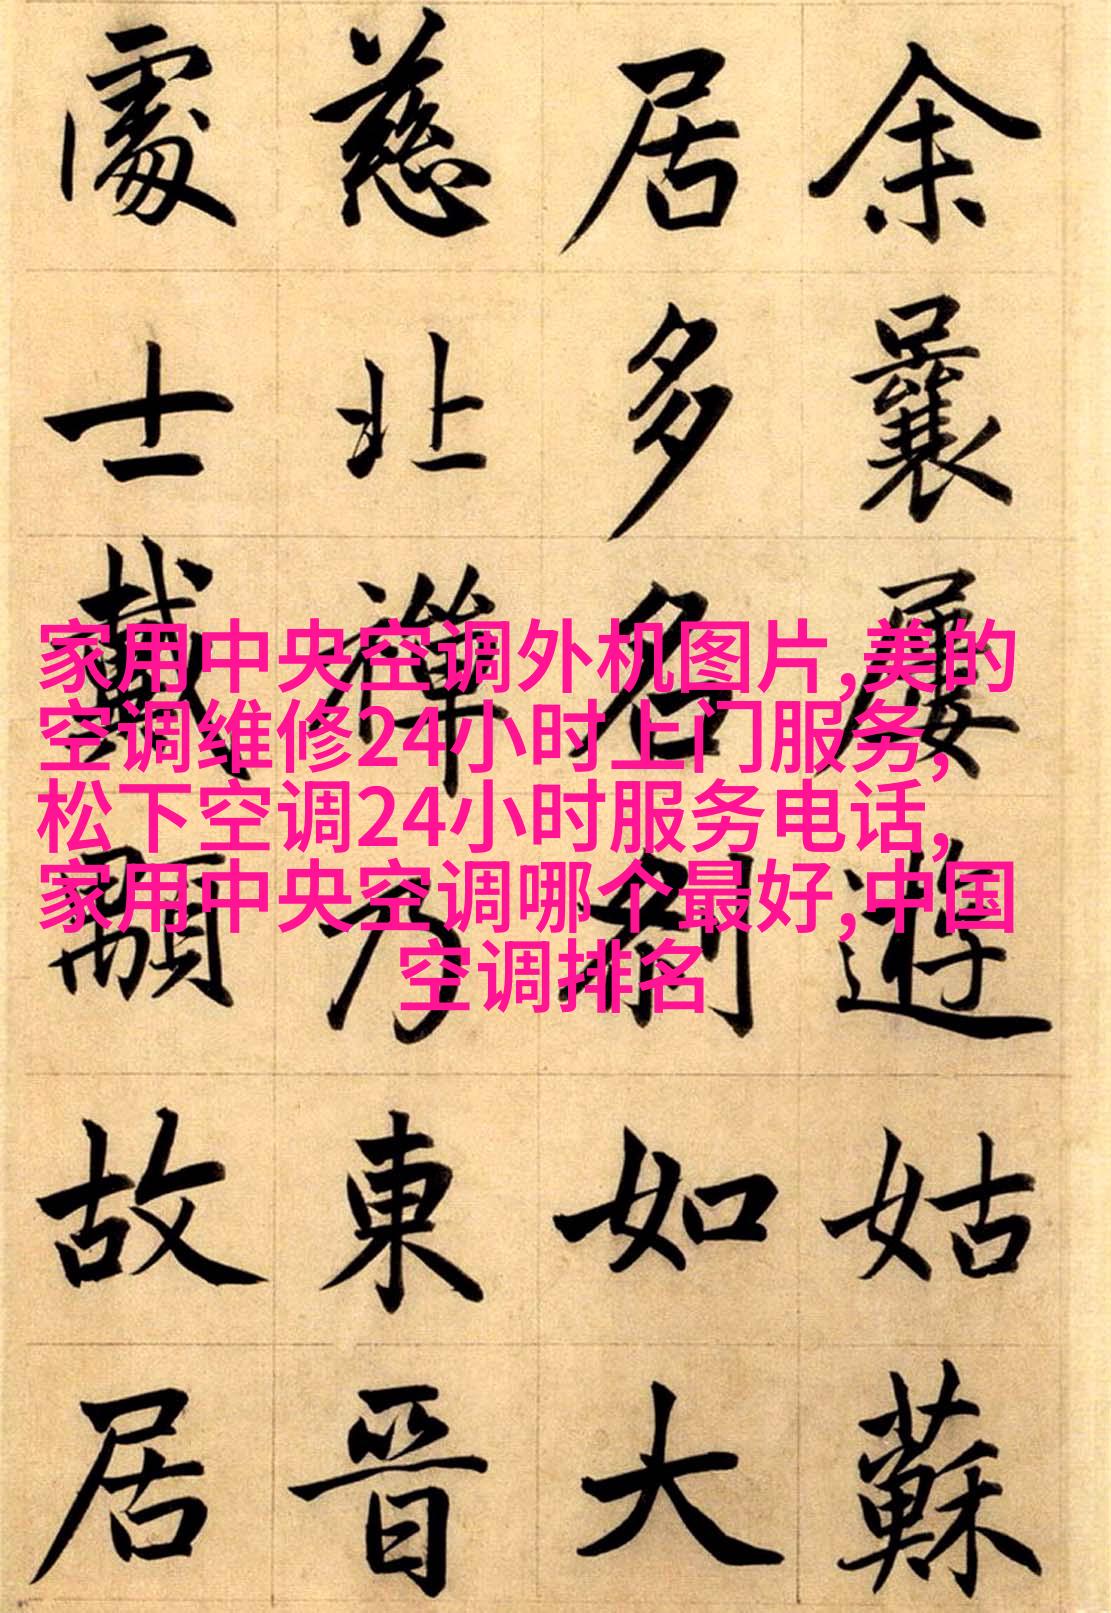 余曩屢遊姑蘇
居多名刹如大
慈北禪乃東晋
處士戴顒故居
家用中央空调外机图片,美的
空调维修24小时上门服务,
松下空调24小时服务电话,
家用中央空调哪个最好,中国
空调排名